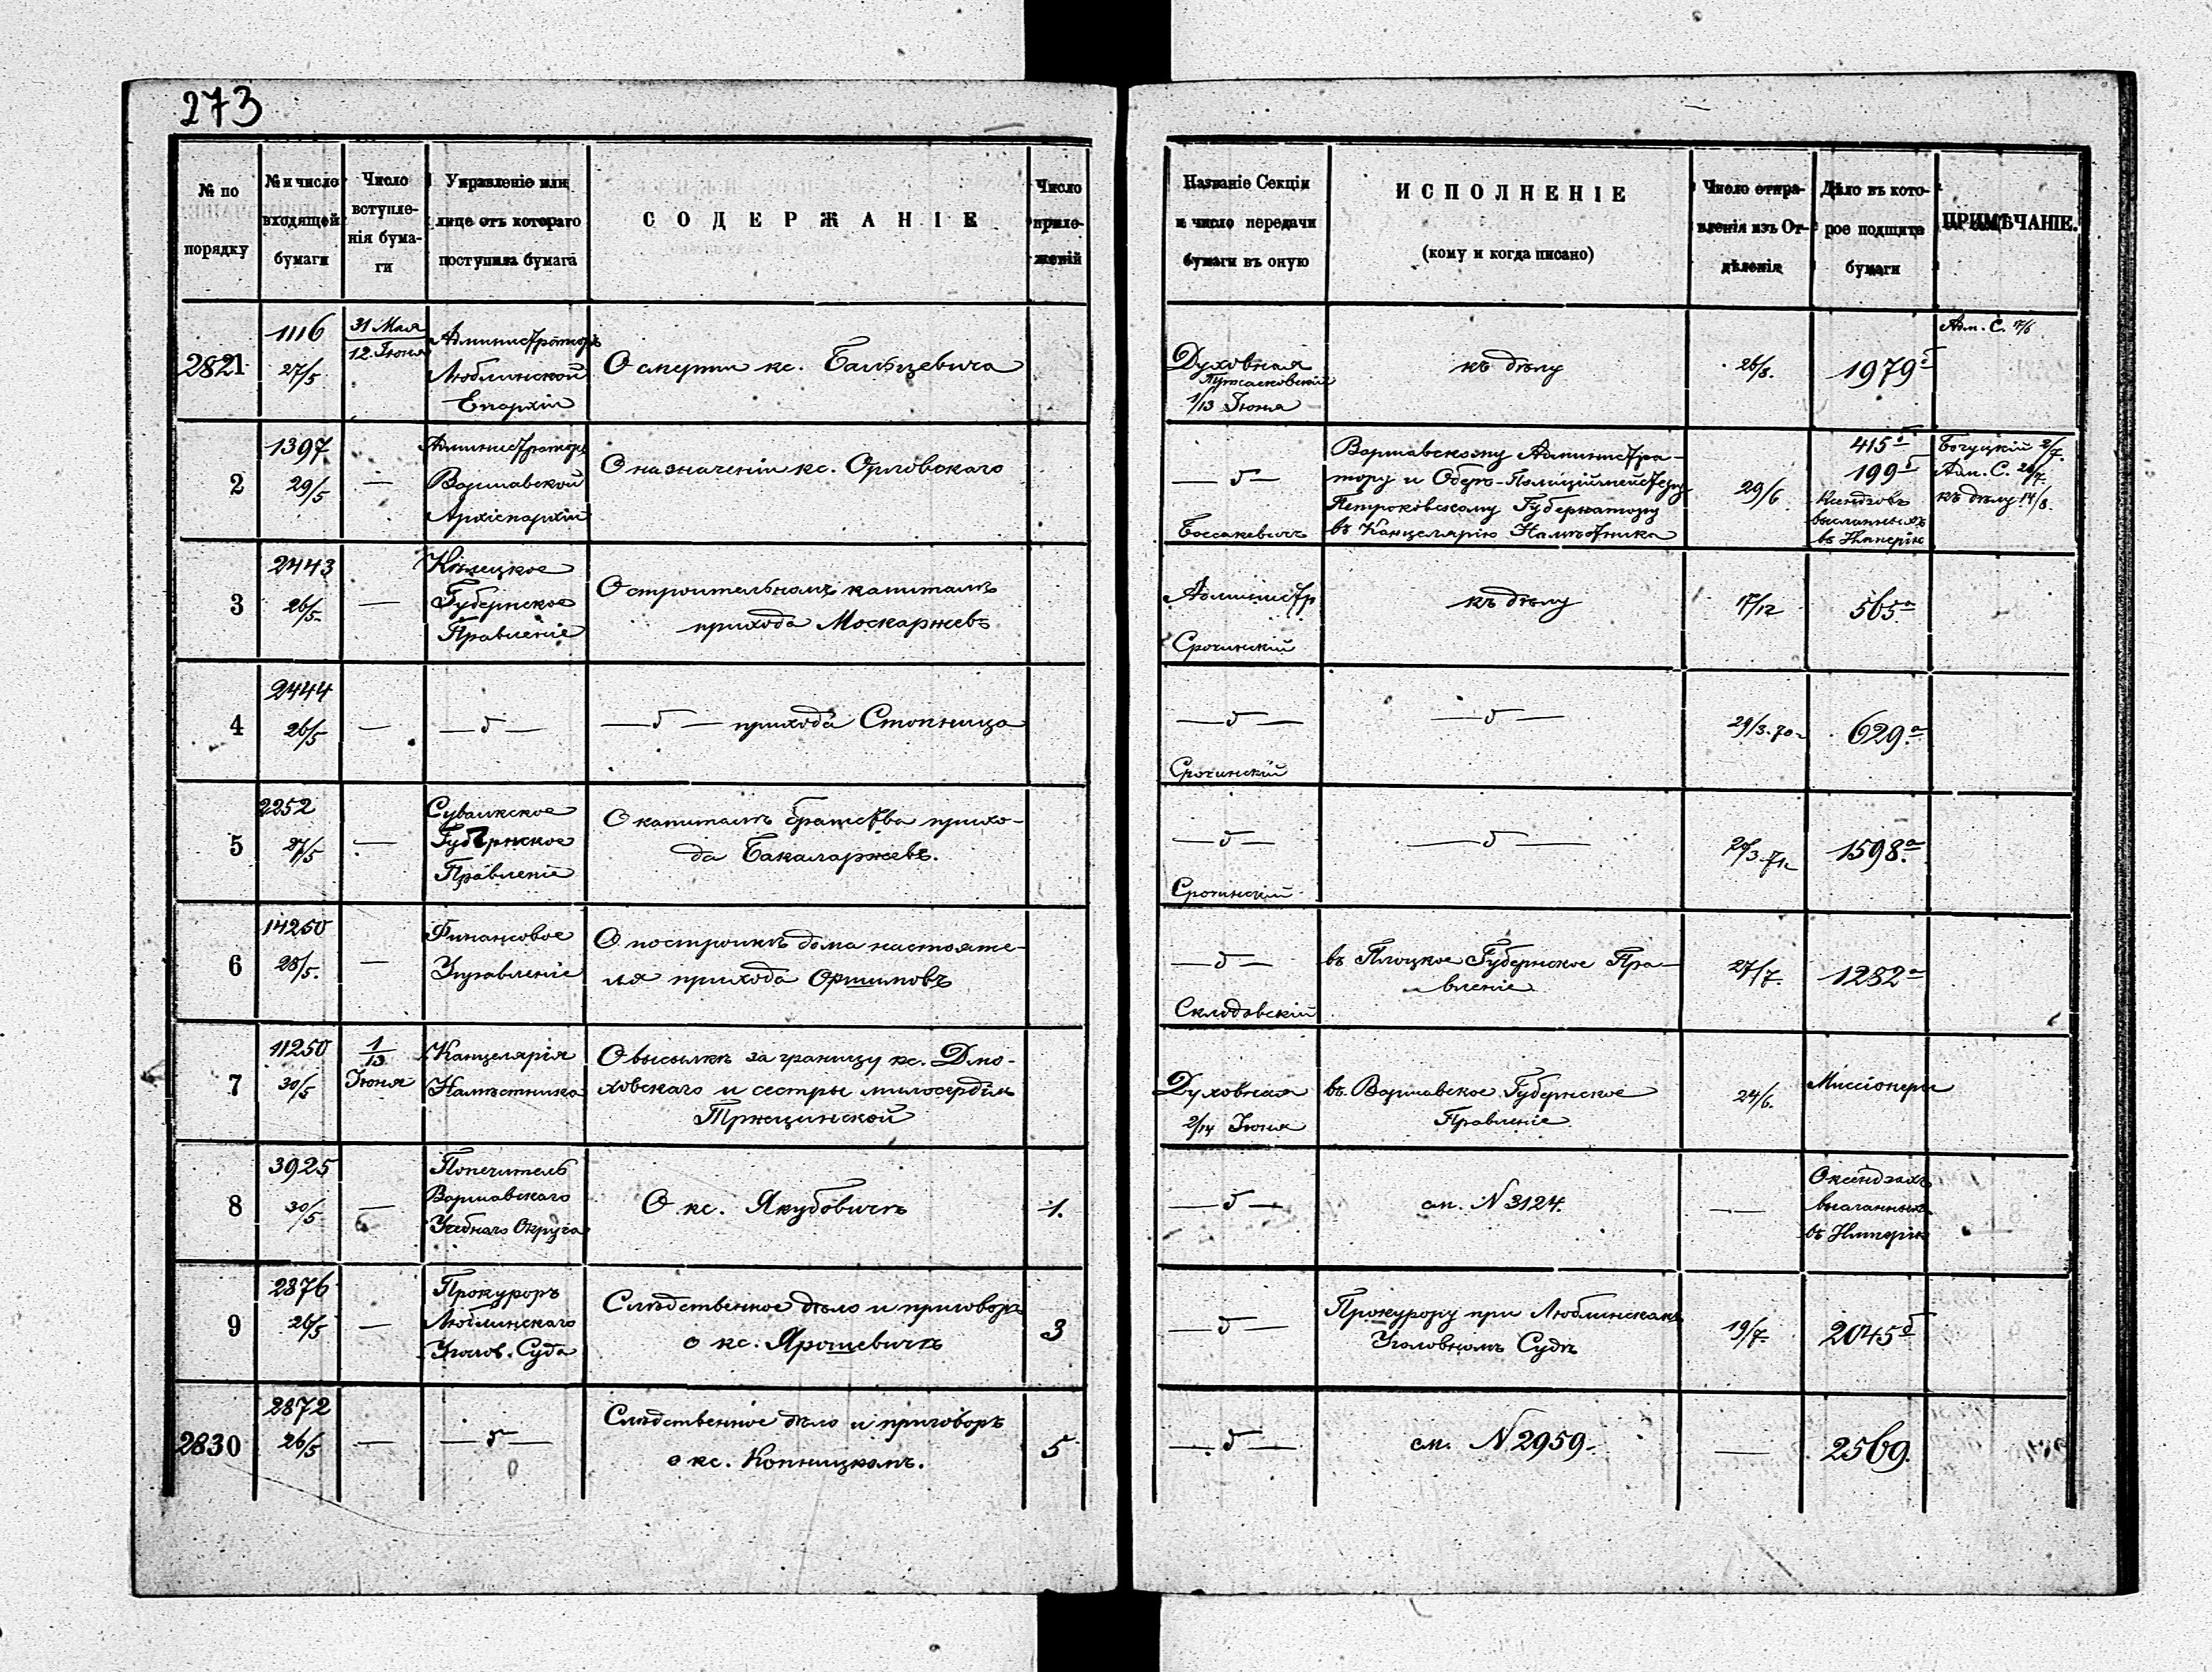 273
№ по порядку
№ и число входящей бумаги
Число вступле-нія бума-ги
Управленіе или лице отъ котораго поступила бумага
СОДЕРЖАНІЕ
Число прило-женій
Названіе Секціи и число передачи бумаги въ оную
ИСПОЛНЕНІЕ
(кому и когда писано)
Число отпра-вленія изъ От-дѣленія
Дѣло въ кото-рое подшита бумаги
ПРИМѢЧАНІЕ.
2821
1116
27/5
31 Мая
12 Іюня
Администраторъ
Люблинской
Епархіи
О смерти кс. Бальцевича
Духовная
1/13 Іюня
къ дѣлу
26/8.
1979б
Адм. С. 17/6
2
1397
29/5
—
Администраторъ
Варшавской
Архіепархіи
О назначеніи кс. Орловскаго
— б —
Боссакевичъ
Варшавскому Администра-
тору и Оберъ-Полиціймейстеру
Петроковскому Губернатору
въ Канцелярію Намѣстника
29/6
415б
199б
Ксендзовъ
высланныхъ
въ Имперію
Богуцкій 2/7.
Адм. С. 26/7
къ дѣлу 14/8.
3
2443
26/5
—
Кѣлецкое
Губернское
Правленіе
О строительномъ капиталѣ
прихода Москаржевъ
Администр
Срочинскій
къ дѣлу
17/12
565а
4
2444
26/5
—
— б —
— б — прихода Стопница
— б —
Срочинскій
— б —
29/3.70г
629.а
5
2252
27/5
—
Сувалкское
Губернское
Правленіе
О капиталѣ братства прихо-
да Бакаларжевъ.
— б —
Срочинскій
— б —
20/3.71г
1598.а
6
14250
28/5.
—
Финансовое
Управленіе
О постройкѣ дома настояте-
ля прихода Оршимовъ
— б —
Склодовскій
въ Плоцкое Губернское Пра-
вленіе
27/7.
1282а
7
11250
30/5
1/13
Іюня
Канцелярія
Намѣстника
О высылкѣ за границу кс. Дмо-
ховскаго и сестры милосердія
Тржецинской
Духовная
2/14 Іюня
въ Варшавское Губернское
Правленіе
24/6.
Миссіонеры
8
3925
30/5
—
Попечитель
Варшавскаго
Учебнаго Округа
О кс. Якубовичѣ
1.
— б —
см. N 3124.
—
О ксендзахъ
высланныхъ
въ Имперію
9
2876
26/5
—
Прокуроръ
Люблинскаго
Уголов. Суда
Слѣдственное дѣло и приговоръ
о кс. Ярошевичѣ
3
— б —
Прокурору при Люблинскомъ
Уголовномъ Судѣ
19/7.
2045б
2830
2872
26/5
—
— б —
Слѣдственное дѣло и приговоръ
о кс. Копницкомъ.
5
— б —
см. N 2959.
—
2569.